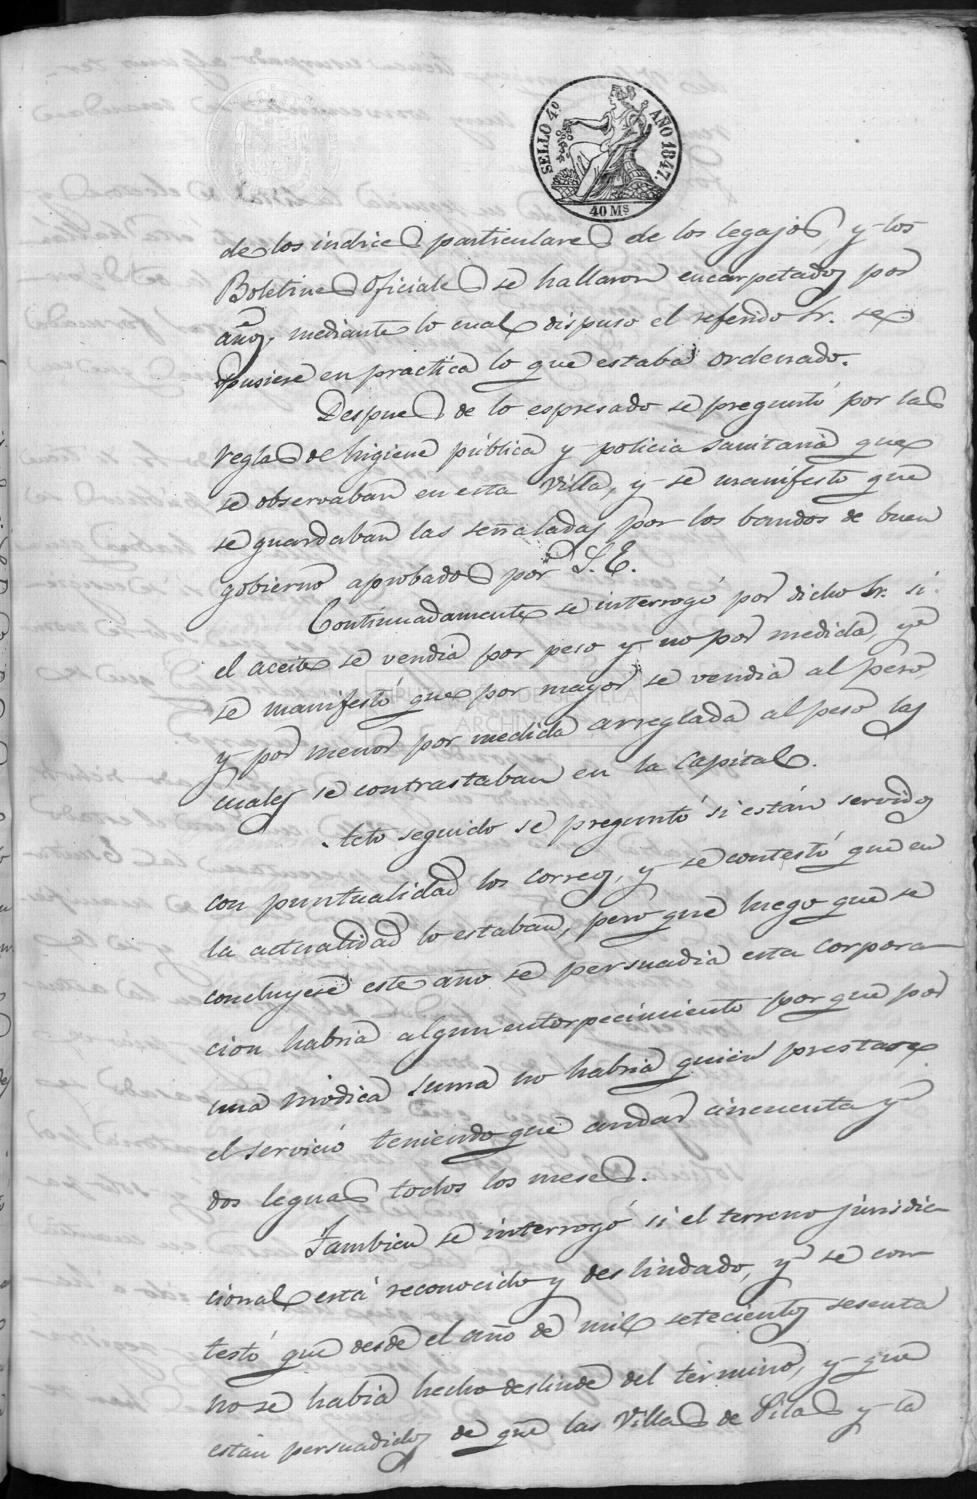 SELLO 4º AÑO 1847.
40 Ms
de los indices particulares de los legajos, y los
Boletines Oficiales se hallaron encarpetados por
años, mediante lo cual dispuso el referido Sr. se
pusiese en practica lo que estaba ordenado.
Despues de lo espresado se preguntó por las
reglas de higiene pública y policia sanitaria que
se observaban en esta Villa, y se manifestó que
se guardaban las señaladas por los bandos de buen
gobierno aprobados por S. E.
Continuadamente se interrogó por dicho Sr. si
el aceite se vendia por peso y no por medida, y
se manifestó que por mayor se vendia al peso,
y por menor por medida arreglada al peso las
cuales se contrastaban en la Capital.
Acto seguido se preguntó si están servidos
con puntualidad los correos, y se contestó que en
la actualidad lo estaban, pero que luego que se
concluyese este año se persuadia esta corpora
cion habria algun entorpecimiento por que por
una módica suma no habria quien prestase
el servicio teniendo que andar cincuenta y
dos leguas todos los meses.
Tambien se interrogó si el terreno jurisdic
cional está reconocido y deslindado, y se con
testó que desde el año de mil setecientos sesenta
no se habia hecho deslinde del término, y que
están persuadidos de que las Villas de Pilas y la